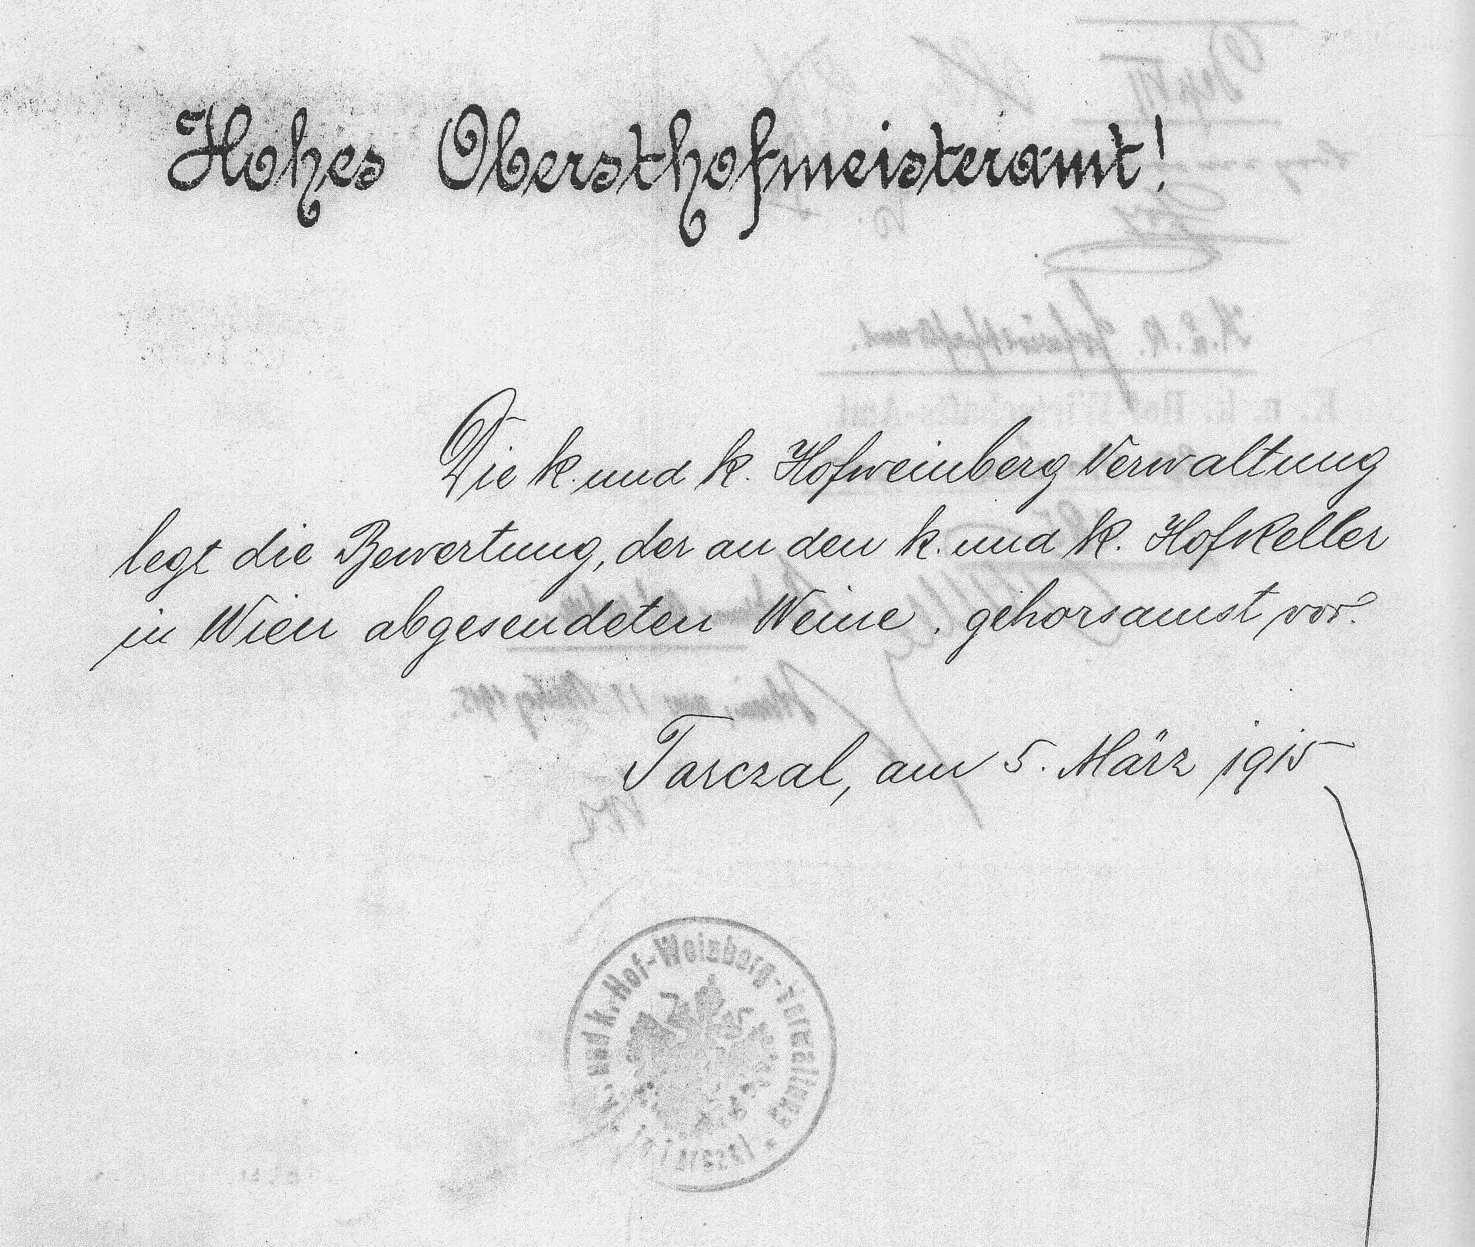 Hohes Obersthofmeisteramt!
Die k. und k. Hofweinberg Verwaltung
legt die Bewertung, der an den k. und k. Hofkeller
in Wien abgesendeten Weine, gehorsamst vor.
Tarczal, am 5. März 1915
k. und k. Hof-Weinberg-Verwaltung
in Tarczal